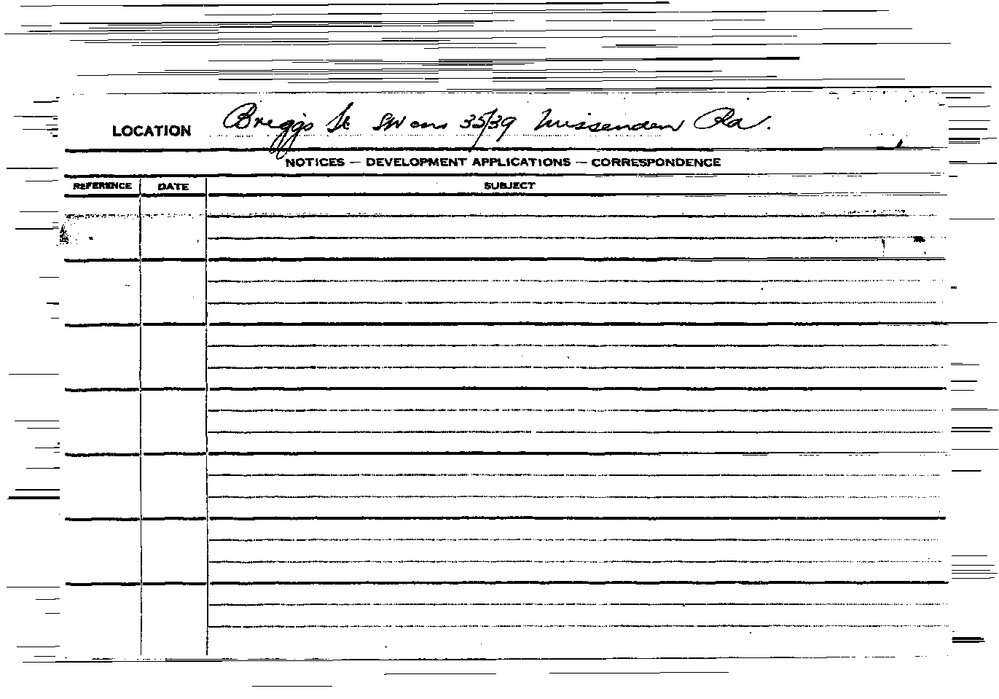 LOCATION Briggs St SW cnr 35/39 Missenden Rd.
NOTICES — DEVELOPMENT APPLICATIONS — CORRESPONDENCE
REFERENCE DATE SUBJECT